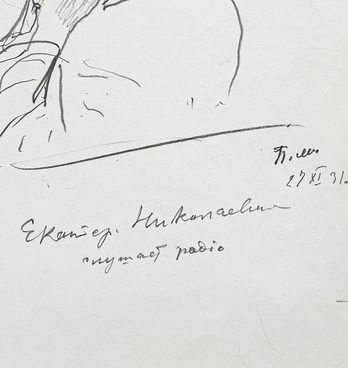 27 XI 31
Екатер. Николаевна
слушает радіо